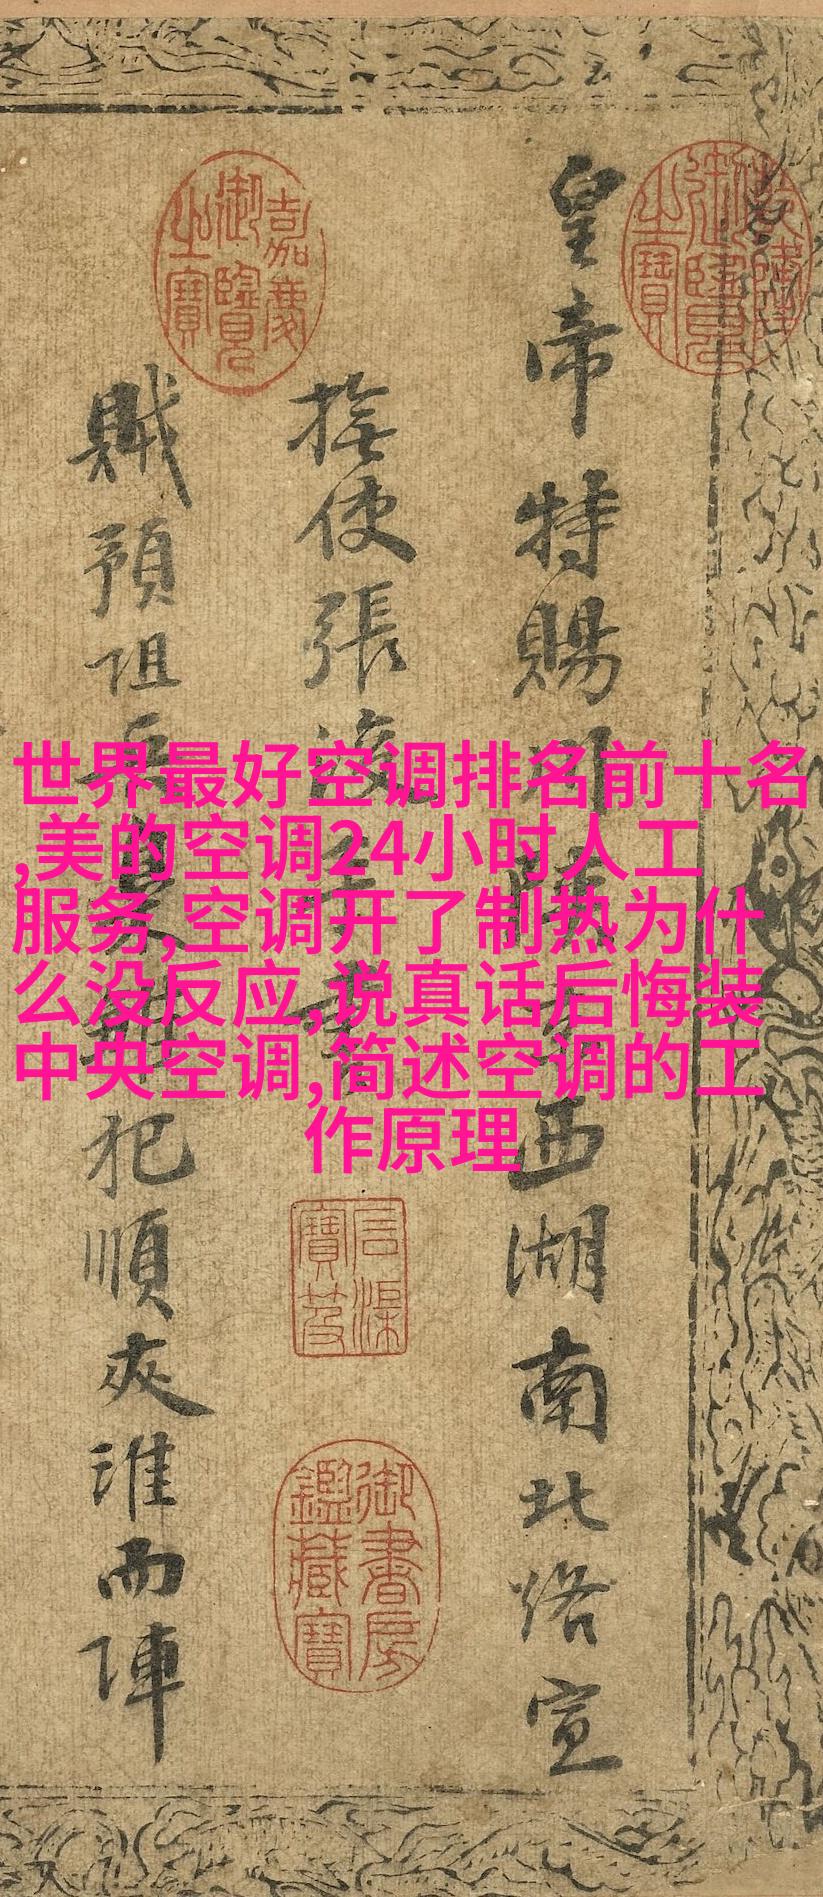 皇帝特賜川陝京西湖南北路宣
撫使張浚手書
賊預阻兵梟獍犯順夾淮而陣
世界最好空调排名前十名
,美的空调24小时人工
服务,空调开了制热为什
么没反应,说真话后悔装
中央空调,简述空调的工
作原理
乾隆御覽之寶
嘉慶御覽之寶
石渠寶笈
御書房鑑藏寶